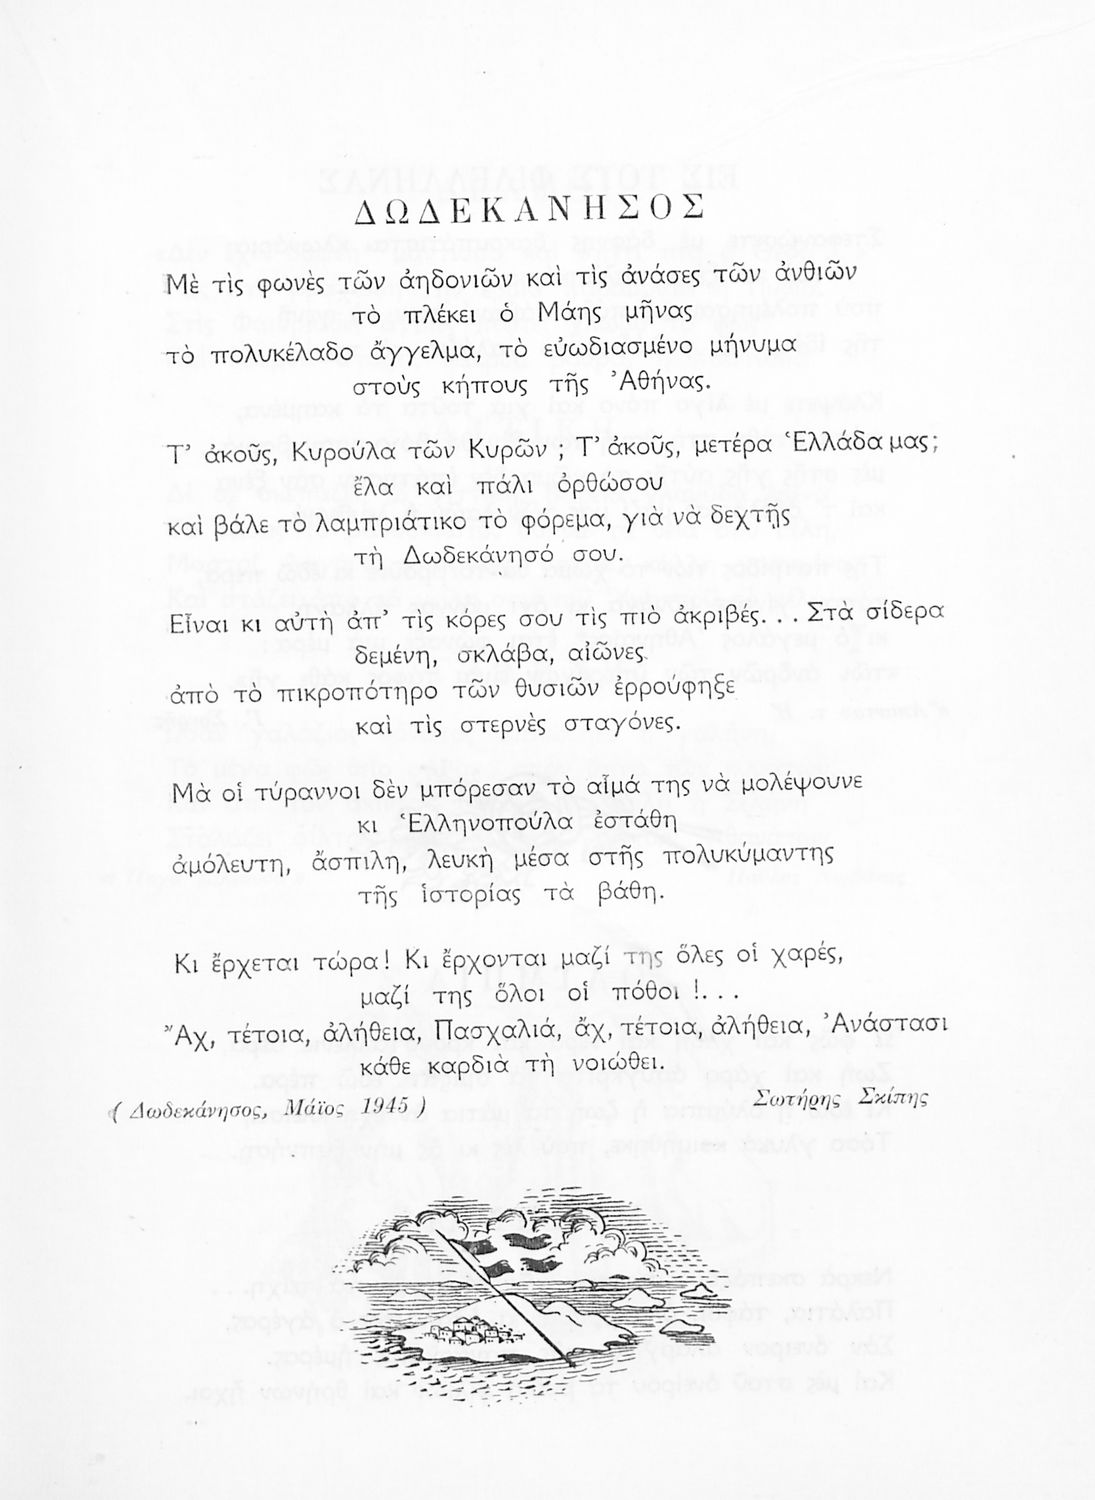 ΔΩΔΕΚΑΝΗΣΟΣ
Μὲ τὶς φωνὲς τῶν ἀηδονιῶν καὶ τὶς ἀνάσες τῶν ἀνθιῶν
τὸ πλέκει ὁ Μάης μῆνας
τὸ πολυκέλαδο ἄγγελμα, τὸ εὐωδιασμένο μήνυμα
στοὺς κήπους τῆς Ἀθήνας.
Τ’ ἀκοῦς, Κυρούλα τῶν Κυρῶν ; Τ’ ἀκοῦς, μετέρα Ἑλλάδα μας ;
ἔλα καὶ πάλι ὀρθώσου
καὶ βάλε τὸ λαμπριάτικο τὸ φόρεμα, γιὰ νὰ δεχτῇς
τὴ Δωδεκάνησό σου.
Εἶναι κι αὐτὴ ἀπ’ τὶς κόρες σου τὶς πιὸ ἀκριβές. . . Στὰ σίδερα
δεμένη, σκλάβα, αἰῶνες
ἀπὸ τὸ πικροπότηρο τῶν θυσιῶν ἐρρούφηξε
καὶ τὶς στερνὲς σταγόνες.
Μὰ οἱ τύραννοι δὲν μπόρεσαν τὸ αἷμά της νὰ μολέψουνε
κι Ἑλληνοπούλα ἐστάθη
ἀμόλευτη, ἄσπιλη, λευκὴ μέσα στῆς πολυκύμαντης
τῆς ἱστορίας τὰ βάθη.
Κι ἔρχεται τώρα! Κι ἔρχονται μαζί της ὅλες οἱ χαρές,
μαζί της ὅλοι οἱ πόθοι !. . .
Ἄχ, τέτοια, ἀλήθεια, Πασχαλιά, ἄχ, τέτοια, ἀλήθεια, Ἀνάστασι
κάθε καρδιὰ τὴ νοιώθει.
( Δωδεκάνησος, Μάϊος 1945 ) Σωτήρης Σκίπης